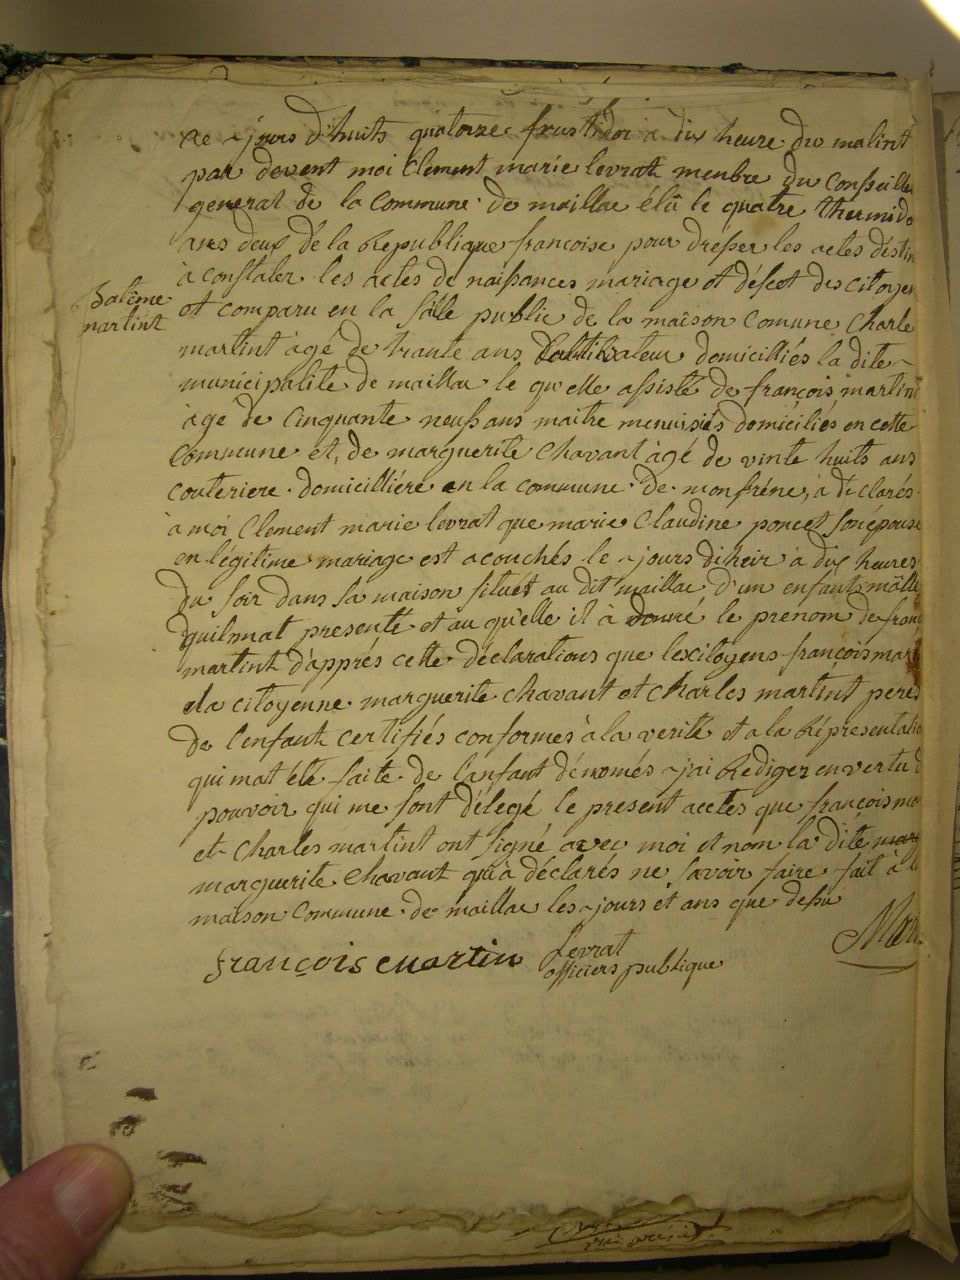 ce jours d'huits quatorze frustidor à dix heure du matint
par devent moi Clement marie levrat menbre du Conseille
general de la Commune de maillac élû le quatre thermido
ans deux de la Republique françoise pour dresser les actes déstin
à constater les actes de naissances mariage et déscet des citoyen
Batême
martint
et comparu en la salle public de la maison Comune Charle
martint âgé de trante ans Cultivateur domicilliés la dite
municipalité de maillac le qu'elle assisté de françois martint
âgé de Cinquante neufs ans maitre menuisiés domiciliés en cette
Commune et, de marguerite Chavant âgé de vinte huits ans
couteriere domicilliére en la commune de monfréne, à declarés
à moi Clement marie levrat que marie Claudine poncet son épouse
en légitime mariage est acouchés le jours diheir à dix heures
du soir dans sa maison situét au dit maillac d'un enfant mâlle
quilmat presenté et au qu'elle il à donné le prénom de fran
martint d'apprés cette déclarations que les citoyens françois mart
ela citoyenne marguerite Chavant et Charles martint peres
de l'enfant certifiés conformés à la verité et a la Répresentatio
qui mat été faite de l'anfant dénomés jai Rediger en vertu d
pouvoir qui me sont délegé le present acctes que françois ma
et Charles martint ont signé avec moi et nom la dite mar
marguerite Chavant qu'à déclarés ne savoir faire fait à l
maison Commune de maillac les jours et ans que desu
françois martin Levrat Mar
officiers publique